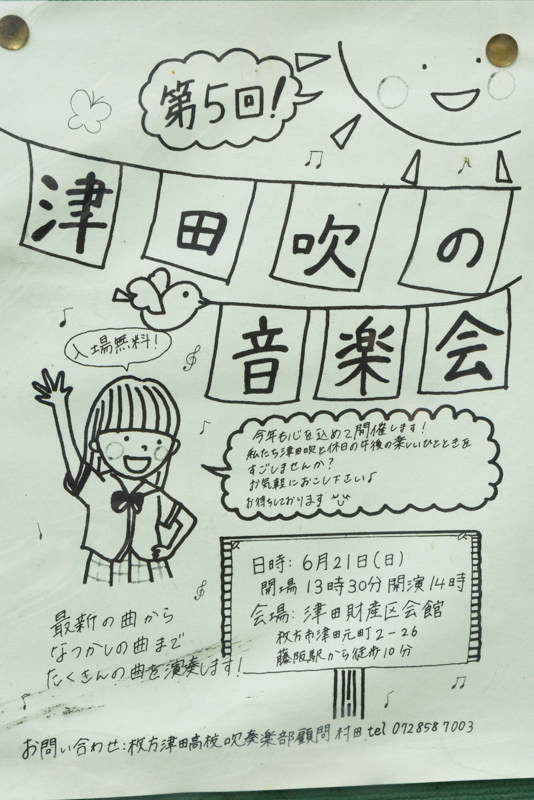 第5回!
津田吹の
音楽会
入場無料!
今年も心を込めて開催します!
私たち津田吹と休日の午後の楽しいひとときを
すごしませんか?
お気軽におこし下さい♪
お待ちしております
日時: 6月21日(日)
開場 13時30分 開演14時
会場: 津田財産区会館
枚方市津田元町2-26
藤阪駅から徒歩10分
最新の曲から
なつかしの曲まで
たくさんの曲を演奏します!
お問い合わせ:枚方津田高校 吹奏楽部顧問 村田 tel 072 858 7003